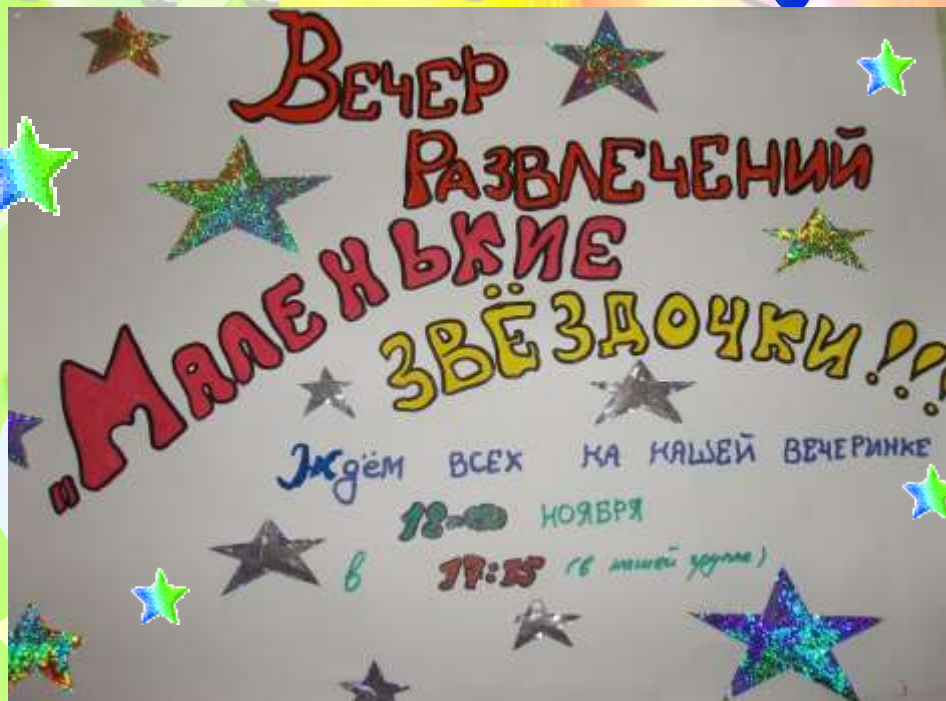 Вечер
Развлечений
„Маленькие
звёздочки!!!
Ждём всех на нашей вечеринке
ноября
в (в нашей группе)